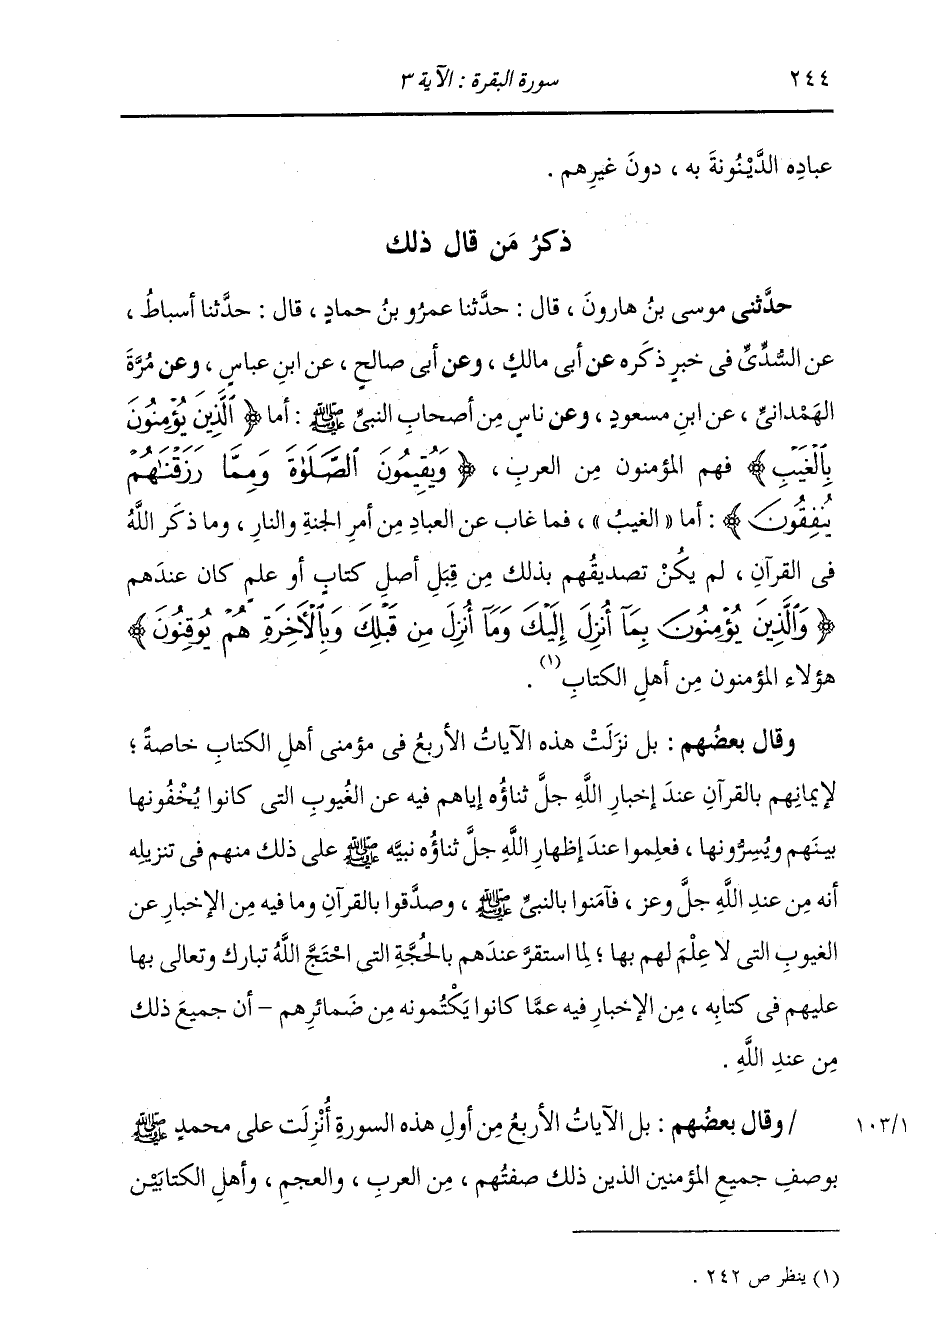 ٢٤٤ سورة البقرة : الآية ٣
عبادِه الدَّيْنُونةَ به ، دونَ غيرِهم .
ذكرُ مَن قال ذلك
حدَّثنى موسى بنُ هارونَ ، قال : حدَّثنا عمرُو بنُ حمادٍ ، قال : حدَّثنا أسباطُ ،
عن السُّدِّىِّ فى خبرٍ ذكَره عن أبى مالكٍ ، وعن أبى صالحٍ ، عن ابنِ عباسٍ ، وعن مُرَّةَ
الهَمْدانىِّ ، عن ابنِ مسعودٍ ، وعن ناسٍ مِن أصحابِ النبىِّ ﷺ : أما ﴿ ٱلَّذِينَ يُؤْمِنُونَ
بِٱلْغَيْبِ ﴾ فهم المؤمنون مِن العربِ ، ﴿ وَيُقِيمُونَ ٱلصَّلَوٰةَ وَمِمَّا رَزَقْنَـٰهُمْ
يُنفِقُونَ ﴾ : أما « الغيبُ » ، فما غاب عن العبادِ مِن أمرِ الجنةِ والنارِ ، وما ذكَر اللَّهُ
فى القرآنِ ، لم يكُنْ تصديقُهم بذلك مِن قِبَلِ أصلِ كتابٍ أو علمٍ كان عندَهم
﴿ وَٱلَّذِينَ يُؤْمِنُونَ بِمَآ أُنزِلَ إِلَيْكَ وَمَآ أُنزِلَ مِن قَبْلِكَ وَبِٱلْأَخِرَةِ هُمْ يُوقِنُونَ ﴾
هؤلاء المؤمنون مِن أهلِ الكتابِ(١) .
وقال بعضُهم : بل نزَلَتْ هذه الآياتُ الأربعُ فى مؤمنى أهلِ الكتابِ خاصةً ؛
لإيمانِهم بالقرآنِ عندَ إخبارِ اللَّهِ جلَّ ثناؤُه إياهم فيه عن الغُيوبِ التى كانوا يُخْفُونها
بينَهم ويُسِرُّونها ، فعلِموا عندَ إظهارِ اللَّهِ جلَّ ثناؤُه نبيَّه ﷺ على ذلك منهم فى تنزيلِه
أنه مِن عندِ اللَّهِ جلَّ وعز ، فآمَنوا بالنبىِّ ﷺ ، وصدَّقوا بالقرآنِ وما فيه مِن الإخبارِ عن
الغيوبِ التى لا عِلْمَ لهم بها ؛ لِما استقرَّ عندَهم بالحُجَّةِ التى احْتَجَّ اللَّهُ تبارك وتعالى بها
عليهم فى كتابِه ، مِن الإخبارِ فيه عمَّا كانوا يَكْتُمونه مِن ضَمائرِهم – أن جميعَ ذلك
مِن عندِ اللَّهِ .
١/١٠٣ / وقال بعضُهم : بل الآياتُ الأربعُ مِن أولِ هذه السورةِ أُنْزِلَت على محمدٍ ﷺ
بوصفِ جميعِ المؤمنين الذين ذلك صفتُهم ، مِن العربِ ، والعجمِ ، وأهلِ الكتابَيْن
(١) ينظر ص ٢٤٢ .